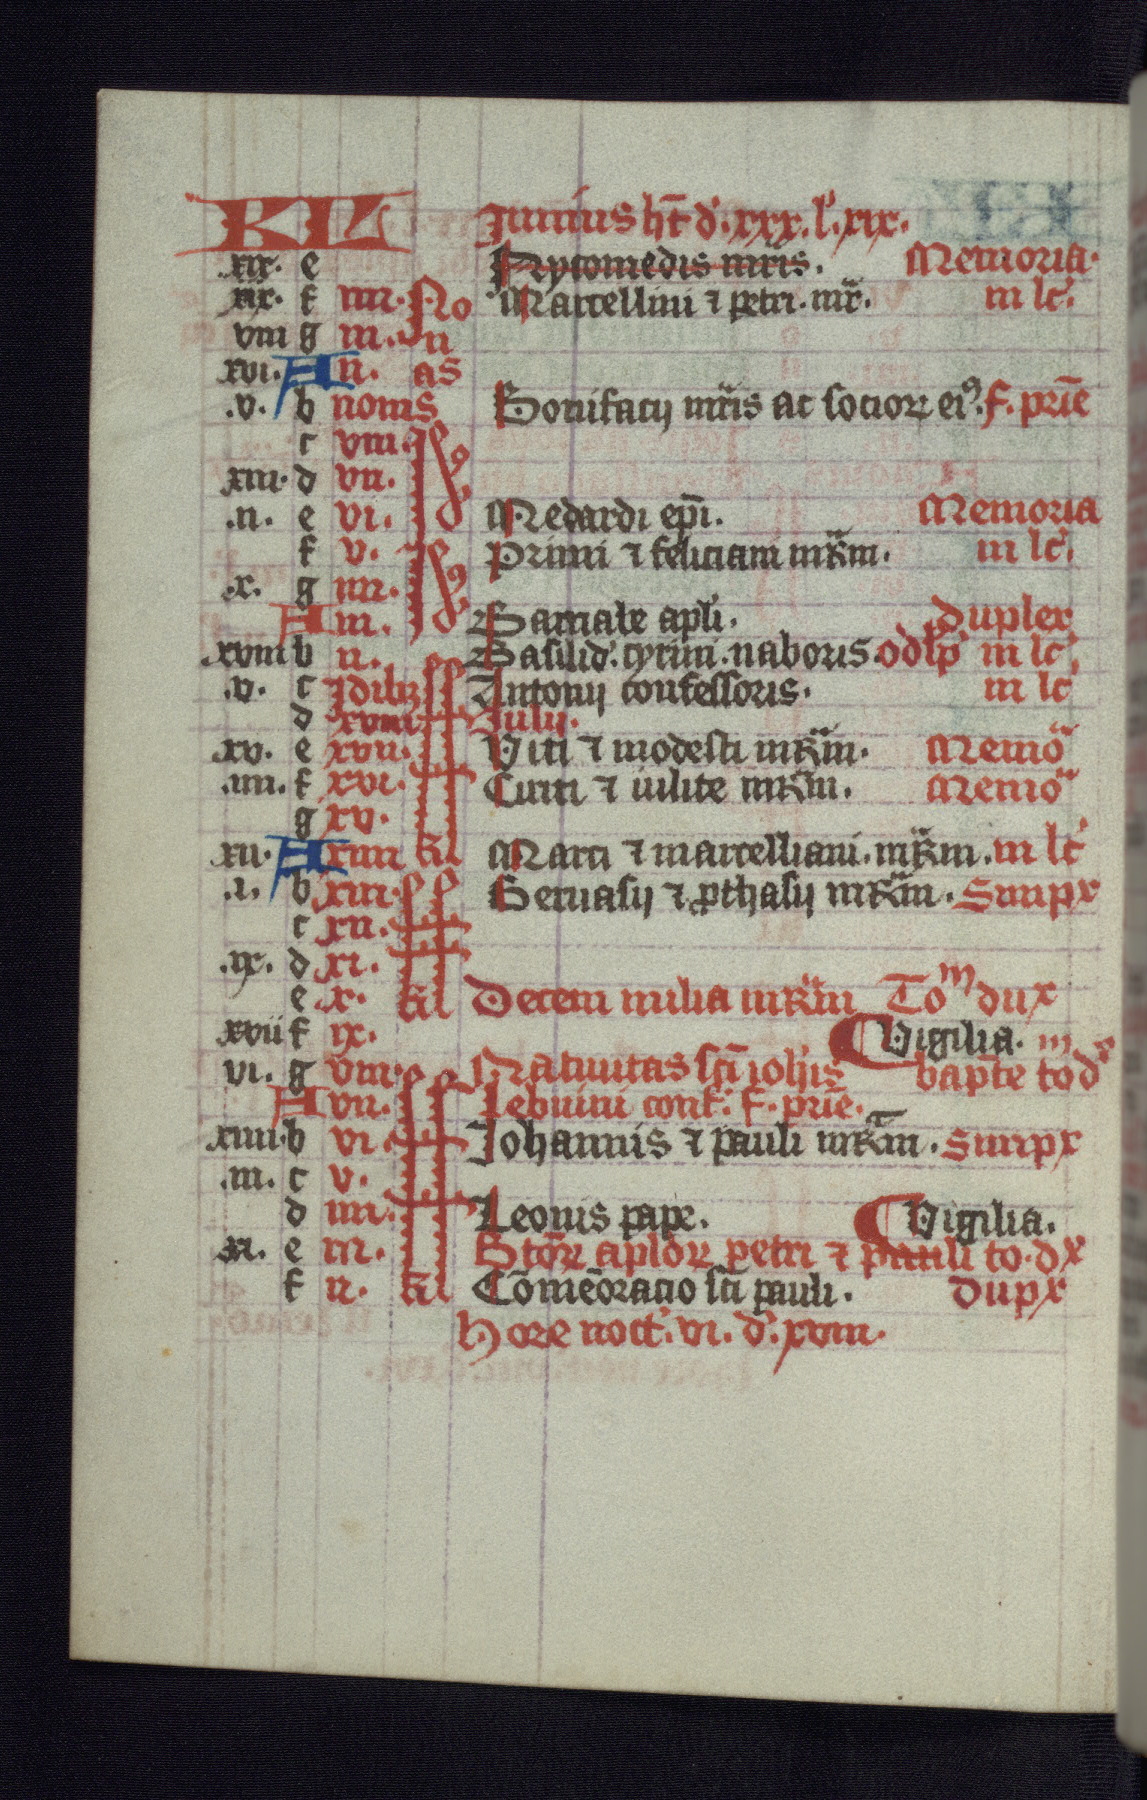 KL Junius ht̄ d'. xxx. l'. xix.
.xix. e Nycomedis mr̄is. Memoria.
xix. f iiii. No Marcellini ⁊ petri. mr̄. iii lc̄.
viii g iii. n
xvi. A ii. as
.v. b nonis Bonifacij mr̄is ac socior eiꝰ. f. prīe
c viii. Id
xiii. d vii.
.ii. e vi. Medardi ep̄i. Memoria
f v. Id Primi ⁊ feliciani mr̄m. iii lc̄.
.x. g iiii.
A iii. Barnabe apl'i. duplex
.xviii b ii. Basilid'. cyrini. naboris. iii lc̄.
.v. c Idibus Antonij confessoris. iii lc̄
d xviii Julij.
.xv. e xvii. Viti ⁊ modesti mr̄m. Memō
.iiii. f xvi. Cirici ⁊ iulite mr̄m. Memō
g xv.
.xii. A xiiii kl Marci ⁊ marcelliani. mr̄m. iii lc̄
.i. b xiii. Geruasij ⁊ ꝓthasij mr̄m. Simpx
c xii.
.ix. d xi.
e x. kl Decem milia mr̄m Toᵐ dux
xvii f ix. Vigilia. iii
.vi. g viii. Natiuitas sc̄i ioh'is bapt̄e to d
A vii. Lebuini conf'. f. prīe.
xiiii. b vi. Johannis ⁊ pauli mr̄m. Simpx
.iii. c v.
d iiii. Leonis pape. Vigilia.
.xi. e iii. Sctōr aplor petri ⁊ pauli to. dx
f ii. kl Cōmēoracio sci pauli. dupx
Hore noct'. vi. d'. xviii.